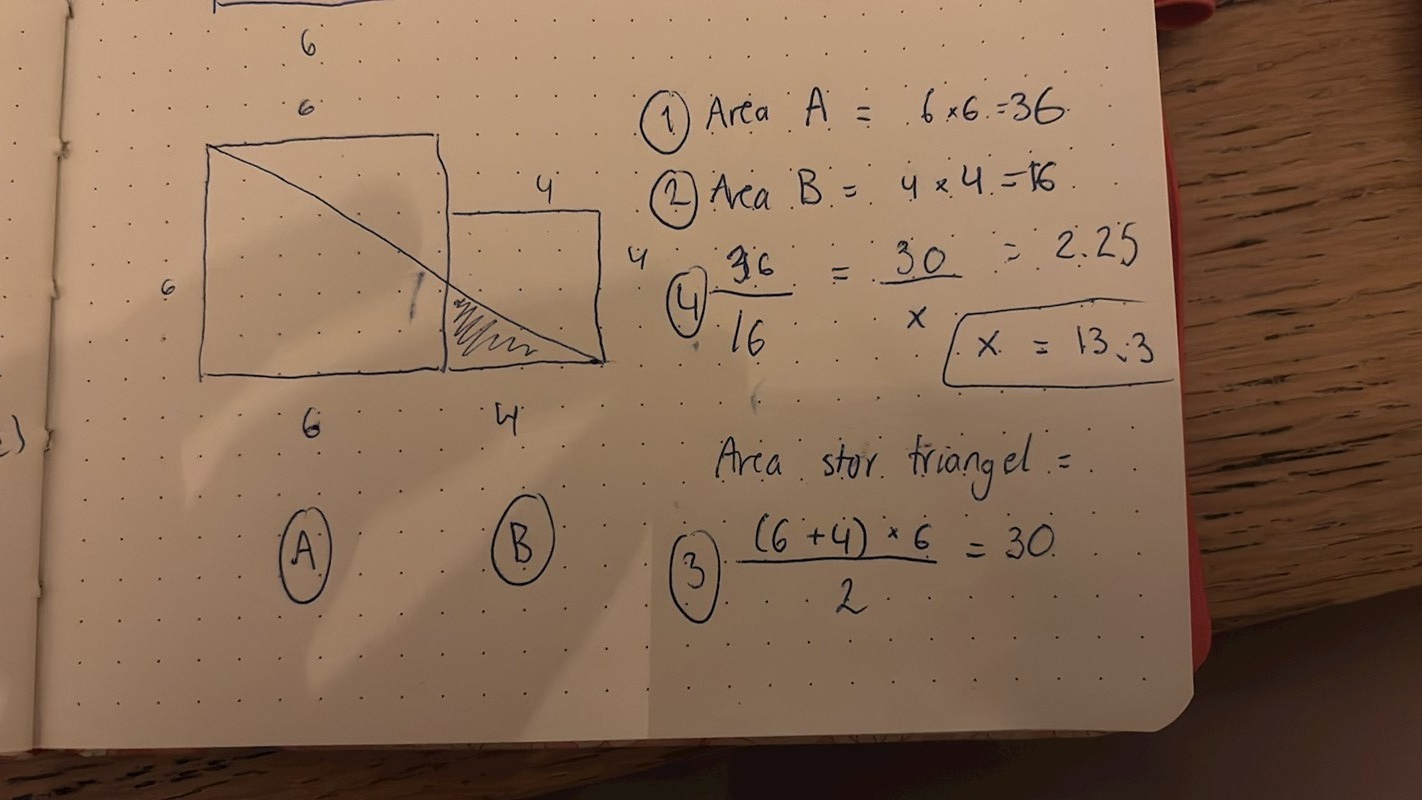 6
6
4
6
4
6
4
A
B
① Area A = 6×6=36
② Area B = 4×4=16
④ 36/16 = 30/x = 2.25
x = 13.3
Area stor triangel =
③ (6+4)×6/2 = 30